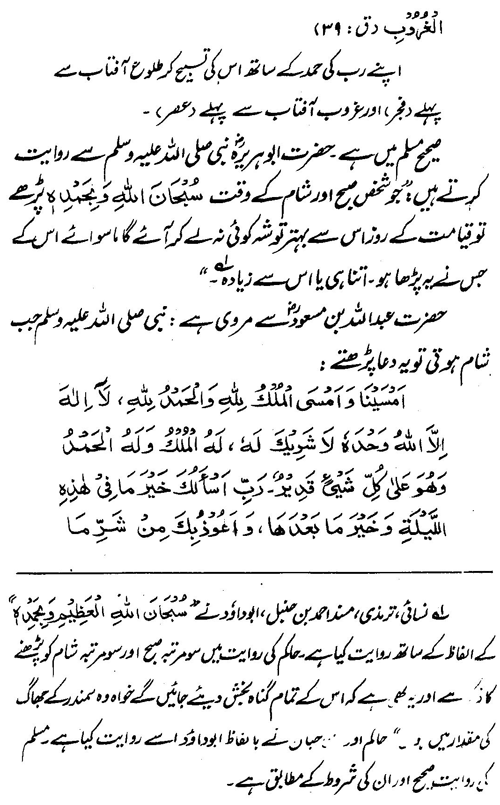 الْغُرُوبِ (ق : ۳۹)
اپنے رب کی حمد کے ساتھ اس کی تسبیح کر طلوع آفتاب سے
پہلے (فجر) اور غروب آفتاب سے پہلے (عصر) ۔
صحیح مسلم میں ہے۔ حضرت ابوہریرہؓ نبی صلی اللہ علیہ وسلم سے روایت
کرتے ہیں: ”جو شخص صبح اور شام کے وقت سُبْحَانَ اللهِ وَبِحَمْدِهٖ پڑھے
تو قیامت کے روز اس سے بہتر توشہ کوئی نہ لے کر آئے گا ماسوائے اس کے
جس نے یہ پڑھا ہو۔ اتنا ہی یا اس سے زیادہ۔“ لہ
حضرت عبداللہ بن مسعودؓ سے مروی ہے : نبی صلی اللہ علیہ وسلم جب
شام ہوتی تو یہ دعا پڑھتے :
اَمْسَيْنَا وَاَمْسَى الْمُلْكُ لِلّٰهِ وَالْحَمْدُ لِلّٰهِ، لَآ اِلٰهَ
اِلَّا اللهُ وَحْدَهٗ لَا شَرِيْكَ لَهٗ، لَهُ الْمُلْكُ وَلَهُ الْحَمْدُ
وَهُوَ عَلٰى كُلِّ شَيْئٍ قَدِيْرٌ۔ رَبِّ اَسْأَلُكَ خَيْرَ مَا فِىْ هٰذِهِ
اللَّيْلَةِ وَخَيْرَ مَا بَعْدَهَا، وَاَعُوْذُبِكَ مِنْ شَرِّ مَا
لہ نسائی، ترمذی، مسند احمد بن حنبل، ابوداؤد نے ”سُبْحَانَ اللهِ الْعَظِيْمِ وَبِحَمْدِهٖ“
کے الفاظ کے ساتھ روایت کیا ہے۔ حاکم کی روایت میں سو مرتبہ صبح اور سو مرتبہ شام کو پڑھنے
کا ذکر ہے اور یہ بھی ہے کہ اس کے تمام گناہ بخش دیئے جائیں گے خواہ وہ سمندر کے جھاگ
کی مقدار میں ہوں“ حاکم اور حبان نے با لفاظ ابوداؤد اسے روایت کیا ہے۔ مسلم
کی روایت صحیح اور ان کی شروط کے مطابق ہے۔